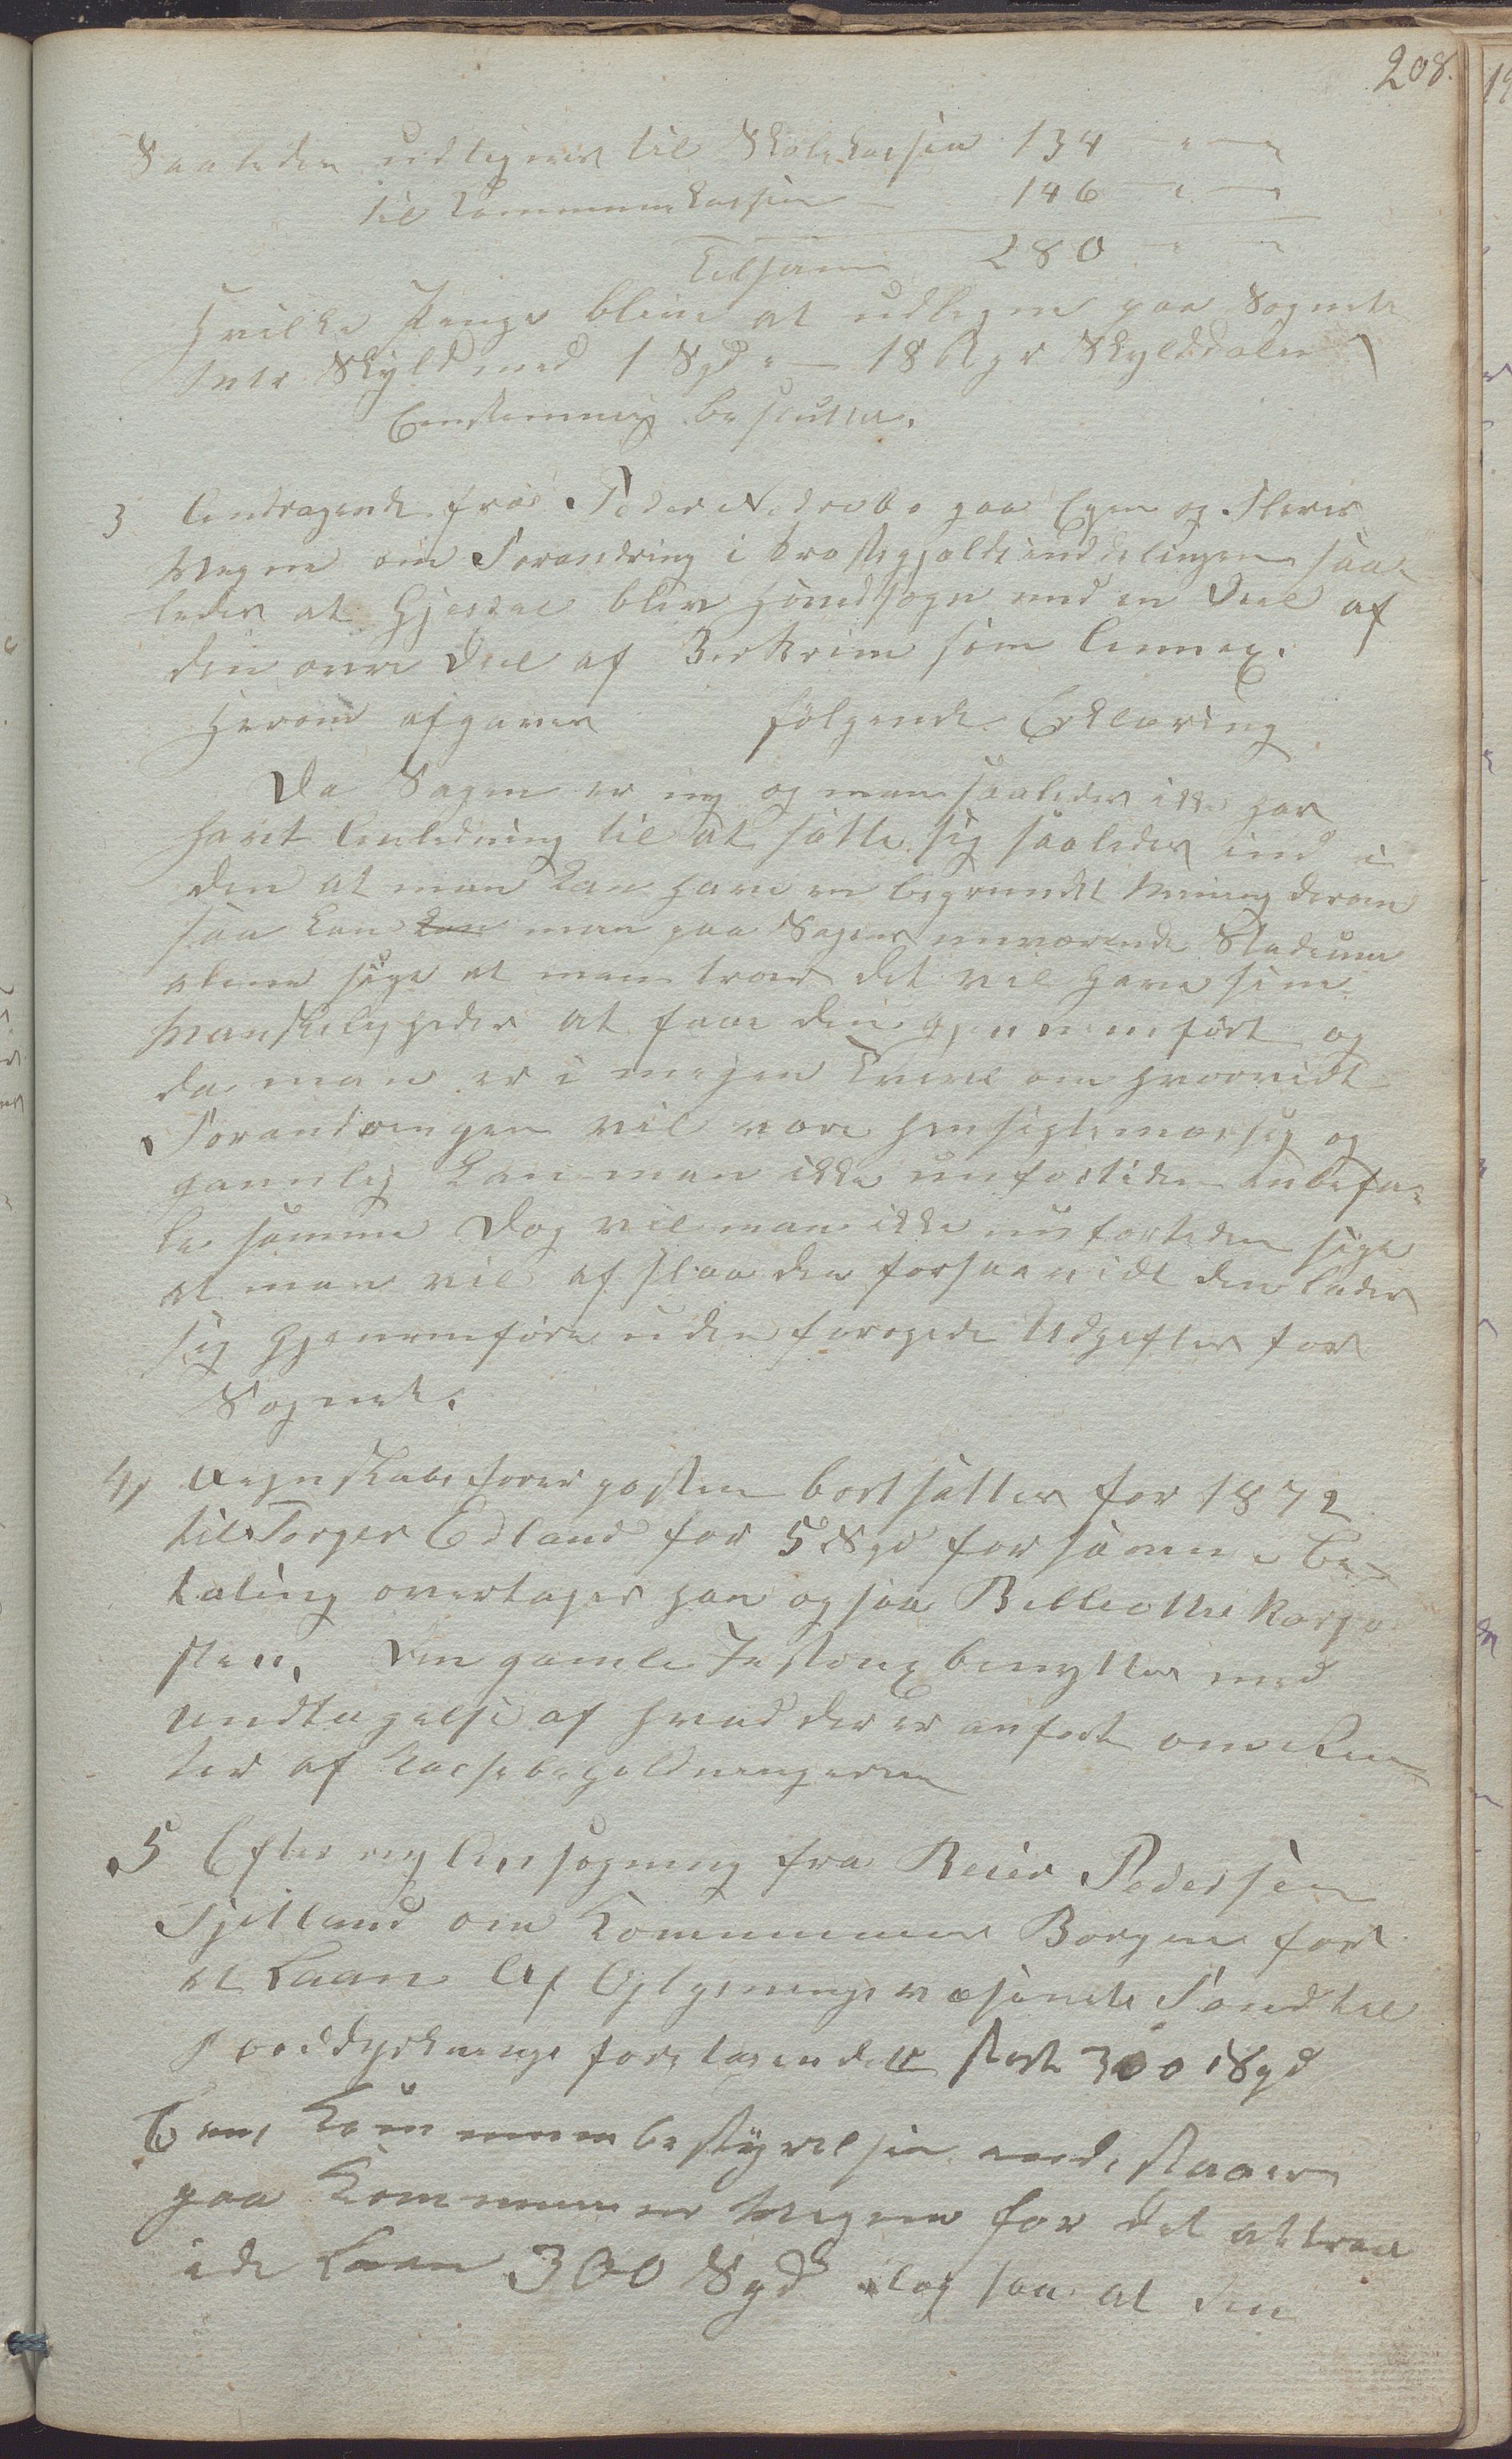 208.
Saaledes udlignes til Skolekassen 134 " "
til Kommunekassen – 146 " "
Tilsam 280 " "
Hvilke Penge blive at udlegne paa Sognets
Matr Skyld med 1 Spd " – 18 s pr Skylddaler
Eenstemmig besluttet.
3 Andragende fra Peder Nedrebø paa Egen og Fleres
Vegne om Forandring i Præstegjeldsinddelingen saa-
ledes at Gjesdal blev Hovedsogn med en Deel af
den øvre Deel af Bjerkrim som Annex.
Herom afgaves følgende Erklæring
Da Sagen er ny og man saaledes ikke har
havt Anledning til at sætte sig saaledes ind i
den at man kan have en begrundet Mening derom
saa kan kan man paa Sagens nuværende Stadium
alene sige at man troer det vil have sine
Vanskeligheder at faae den gjennemført og
da man er i megen Tvivl om hvorvidt
Forandringen vil være hensigtsmæssig og
gavnlig kan man ikke nu for tiden anbefa-
le samme Dog vil man ikke nu for tiden sige
at man vil afslaa den forsaavidt den lader
sig Gjennemføre uden forøgede Udgifter for
Sognet.
4, Regnskabsførerposten bortsættes for 1872
til Torger Edland for 5 Spd for samme Be-
taling overtager han ogsaa Bibliothekarpo
sten. Den gamle Instrux benyttes med
Undtagelse af hvad der er anført om Ren
ter af Kassebeholdningerne
5 Efter ny Ansøgning fra Reier Pedersen
Tjetland om Kommunens Borgen for
et Laan Af Oplysningsvæsenets Fond til
Jorddyrknings foretagender stort 300 Spd
Kommunebestyrelsen indestaaer
paa Kommunens Vegne for det attraa
ede Laan 300 Spd dog saa at den